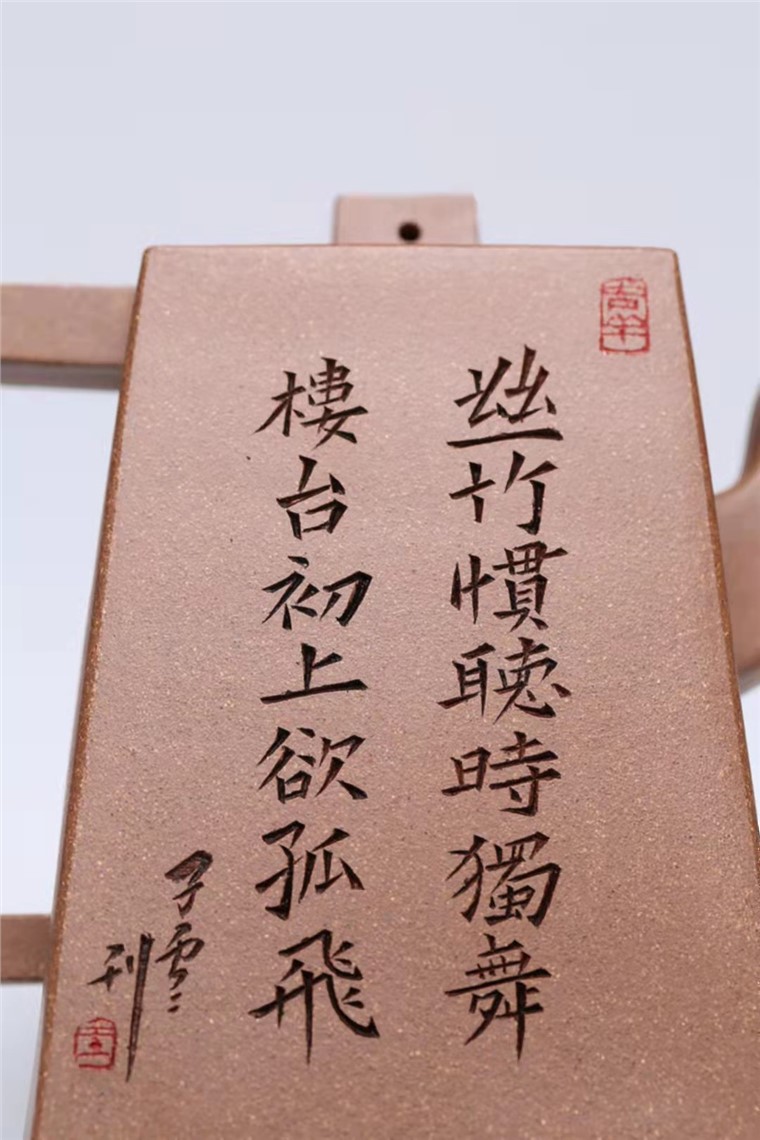 吉羊
丝竹慣聴時獨舞
樓台初上欲孤飛
子雲
刊